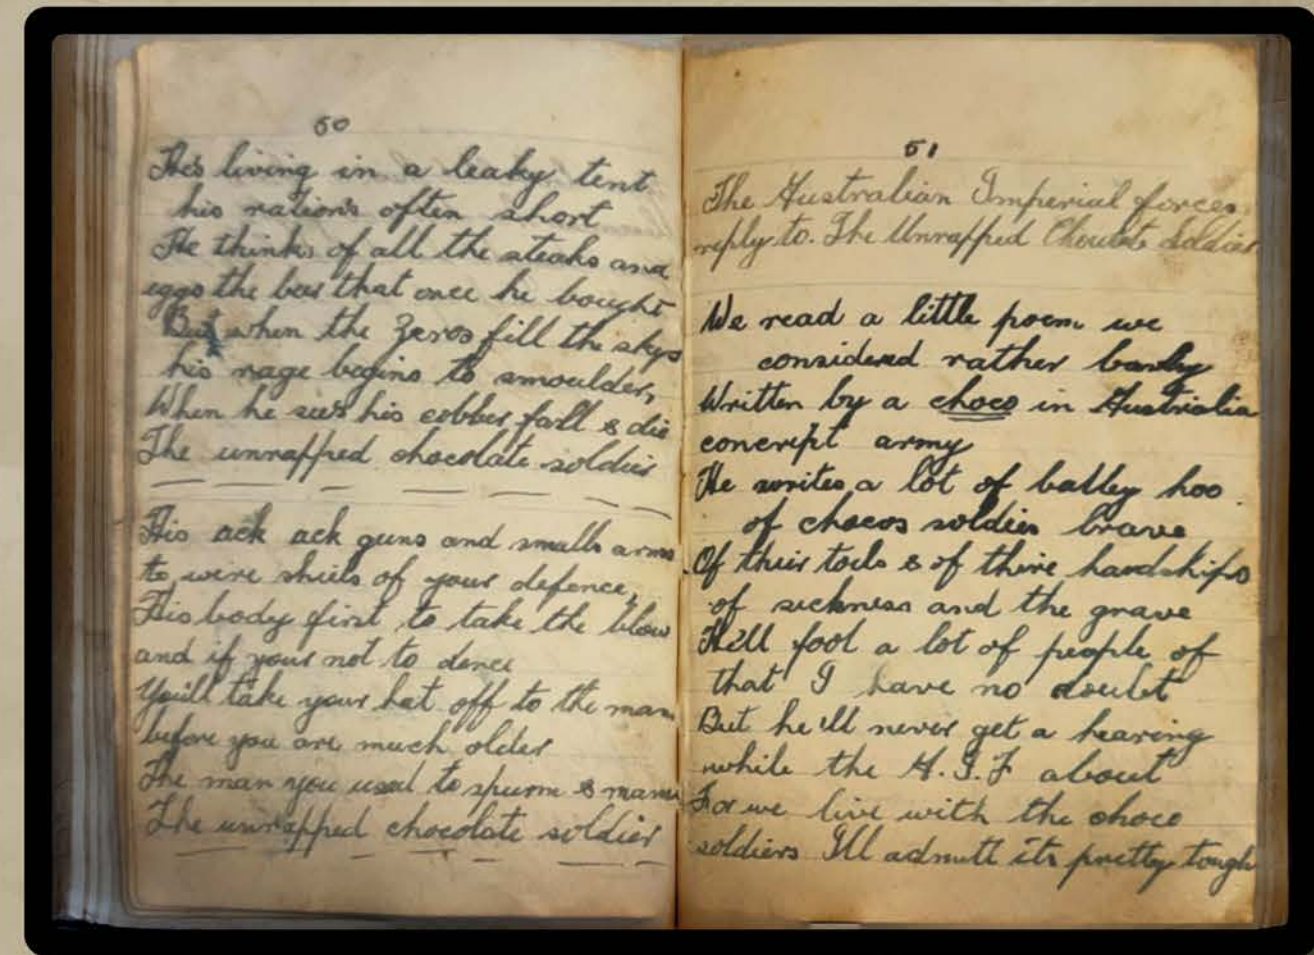 50
He's living in a leaky tent
his ration's often short
He thinks of all the steaks and
eggs the beer that once he bought
But when the Zeros fill the skys
his rage begins to smoulder,
When he sees his cobber fall & die
The unrapped chocolate soldier
His ack ack guns and smalls arms
to wire shiels of your defence,
His body first to take the blow
and if your not to dence
You'll take your hat off to the man
before you are much older
The man you used to spurm &
The unrapped chocolate soldier
51
The Australian Imperial forces
reply to. The Unrapped Soldier
We read a little poem we
considered rather barby
Written by a choco in Australia
concript army
He writes a lot of balley hoo
of chocos soldier brave
Of their toils & of there hardships
of sickness and the grave
He'll fool a lot of people of
that I have no doubt
But he'll never get a hearing
while the A.I.F about
For we live with the choco
soldiers I'll admitt its pretty tough